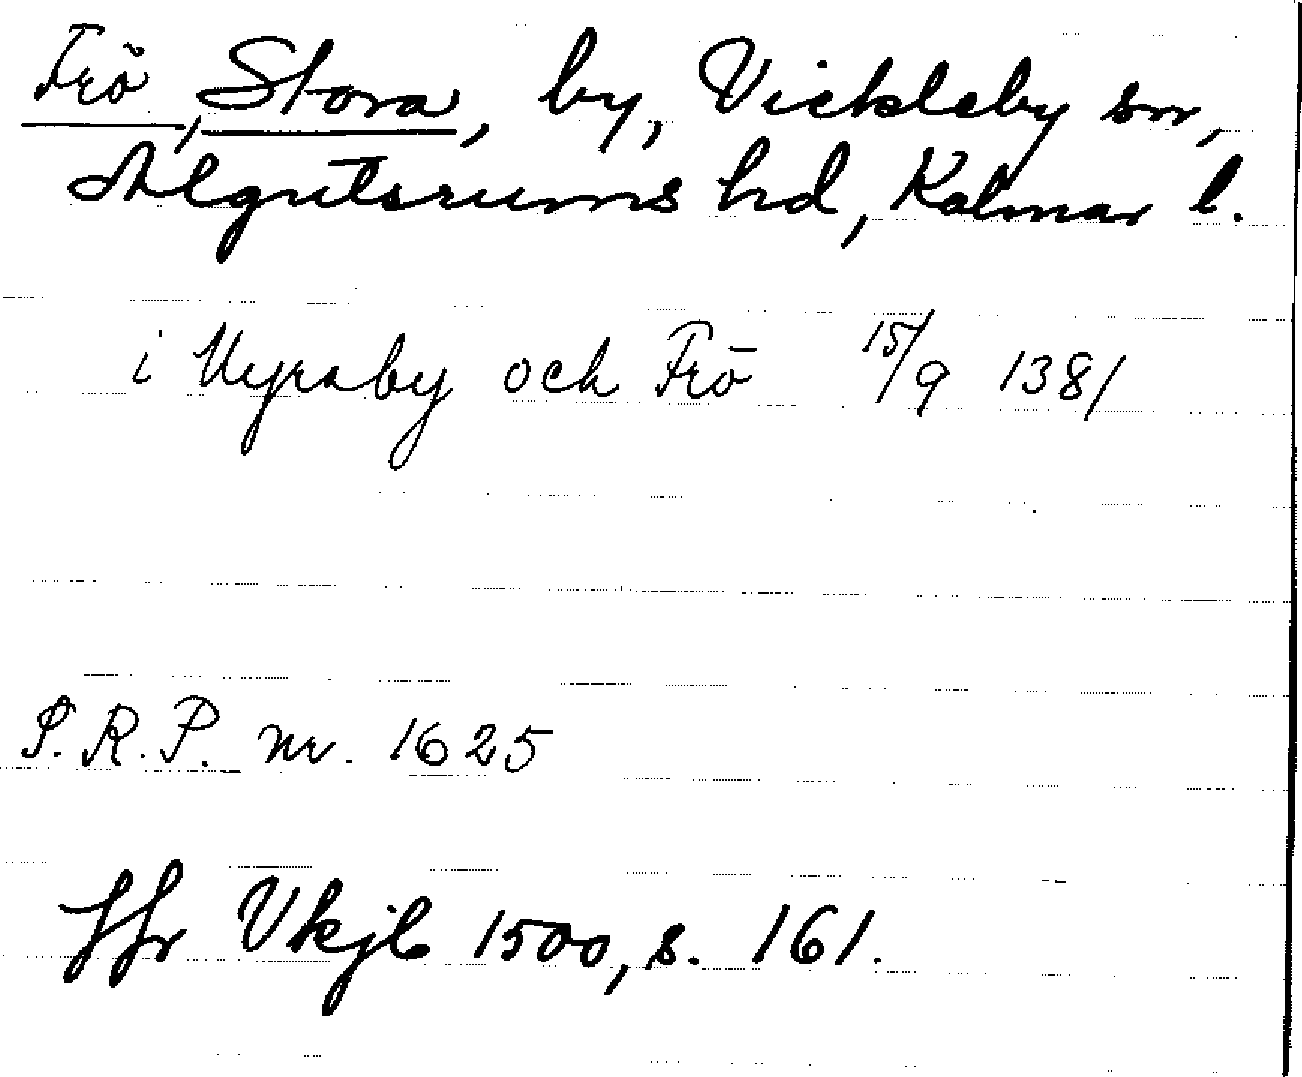 Frö, Stora, by, Vickleby sn,
Algutsrums hd, Kalmar l.
i Uyraby och Frö 15/9 1381
S.R.P. nr. 1625
Jfr Vkjb 1500, s. 161.